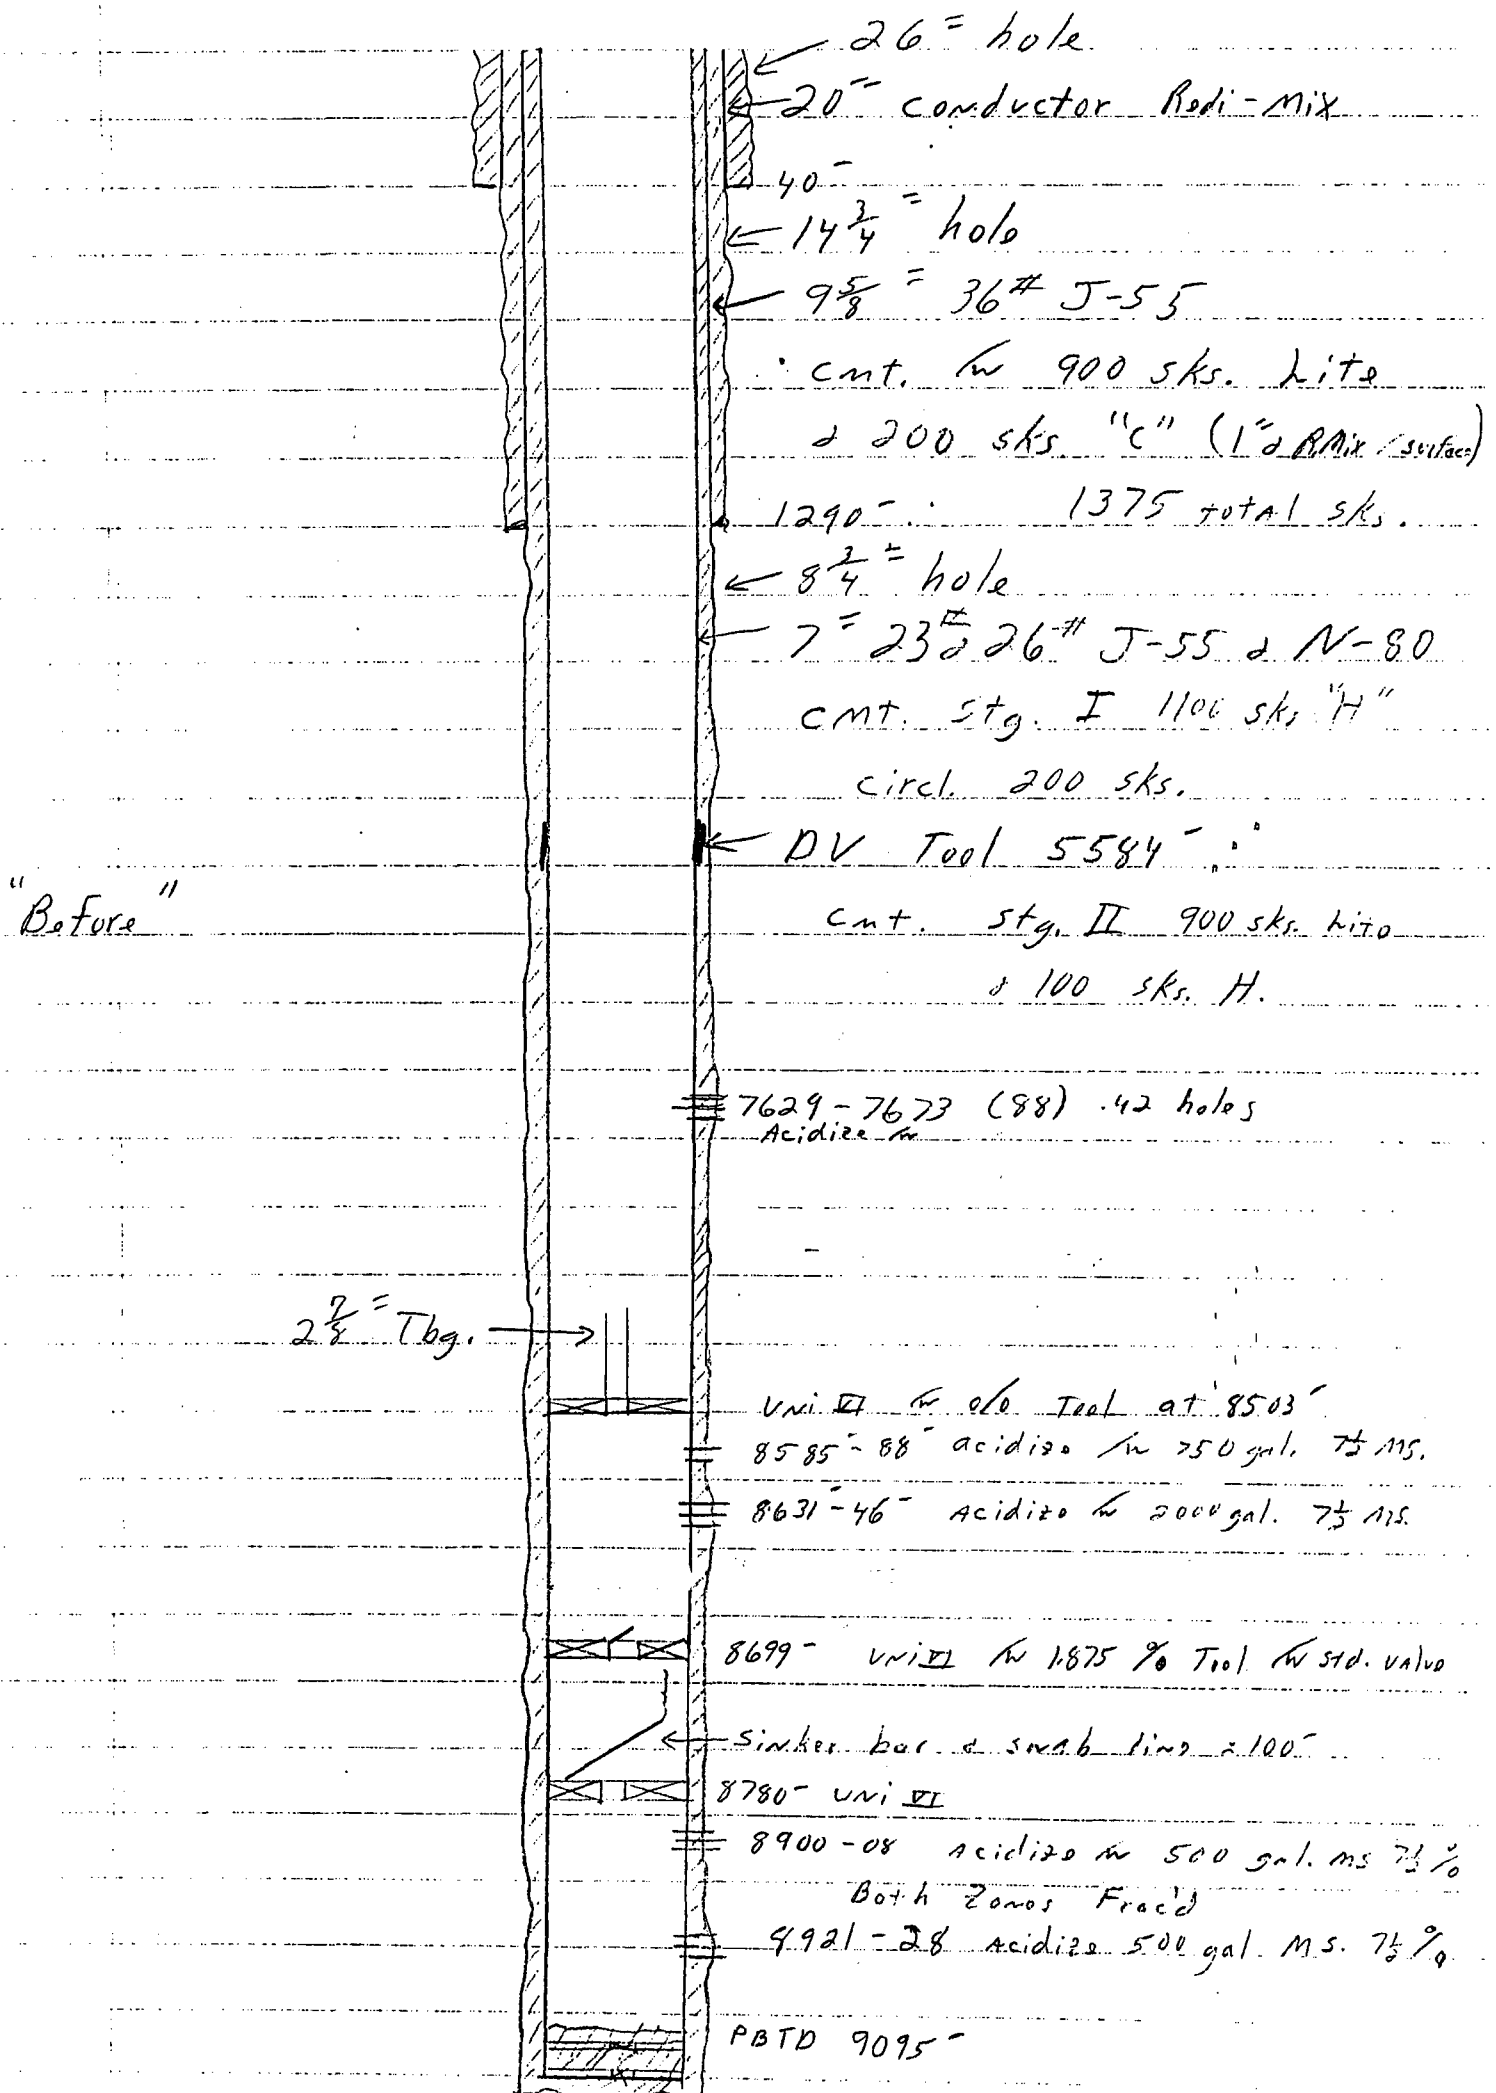 26" hole
20" conductor Redi-Mix
40'
14 3/4" hole
9 5/8" 36# J-55
cmt. w/ 900 sks. Lite
& 200 sks. "C" (1" & RMix / surface)
1290' 1375 total sks.
8 3/4" hole
7" 23# & 26# J-55 & N-80
cmt. stg. I 1100 sks "H"
circl. 200 sks.
DV Tool 5584'
"Before"
cmt. stg. II 900 sks. Lite
& 100 sks. H.
7629-7673 (88) .42 holes
Acidize w/
2 7/8" Tbg.
Uni VI w/ o/o Tool at 8503'
8585'-88' acidize w/ 750 gal. 7 1/2 MS.
8631'-46' Acidize w/ 2000 gal. 7 1/2 MS.
8699' Uni VI w/ 1.875 o/o Tool w/ std. valve
Sinker bar & swab line ≈ 100'
8780' Uni VI
8900-08 Acidize w/ 500 gal. MS 7 1/2 %
Both Zones Frac'd
8921-28 Acidize 500 gal. MS. 7 1/2 %
PBTD 9095'